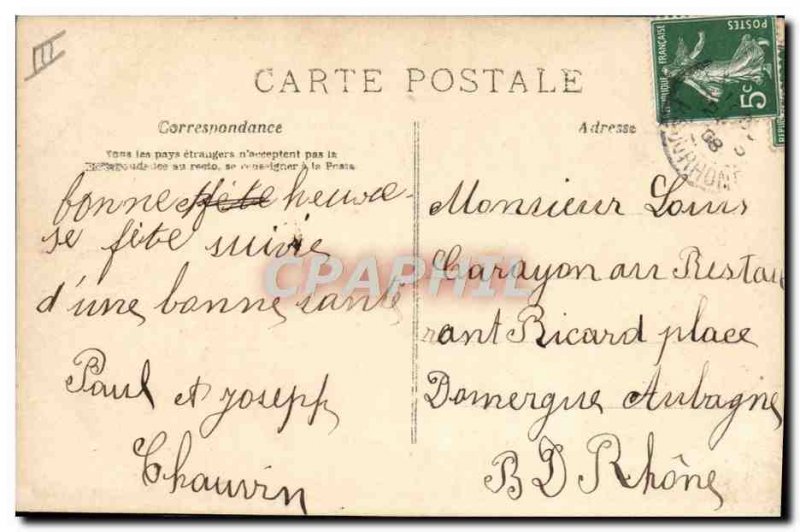 III
CARTE POSTALE
Correspondance
Tous les pays étrangers n'acceptent pas la
au recto, se renseigner à la Poste
bonne fête heureu-
se fête suivie
d'une bonne santé
Paul et joseph
Chauvin
Adresse
POSTES
RÉPUBLIQUE FRANÇAISE
5c
08
RHONE
Monsieur Louis
Carayon au Restau
rant Ricard place
Domergue Aubagne
B D Rhône
CPAPHIL